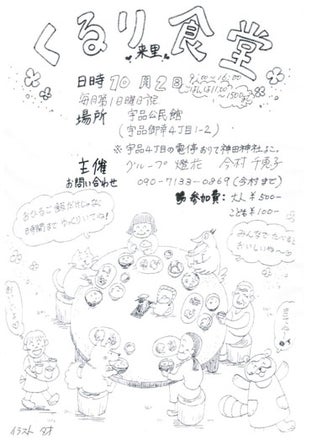 くるり食堂
来里
日時 10月2日
毎月第1日曜日
場所 宇品公民館
(宇品御幸4丁目1-2)
※宇品4丁目の電停おりて神田神社よこ。
主催 グループ 燈花 今村
お問い合わせ 090-7133-0369(今村まで)
参加費:大人¥500-
こども¥100-
おひるご飯だけじゃなく
時間まで ゆっくりいてね!
みんなでたべると
おいしいね〜
イラスト